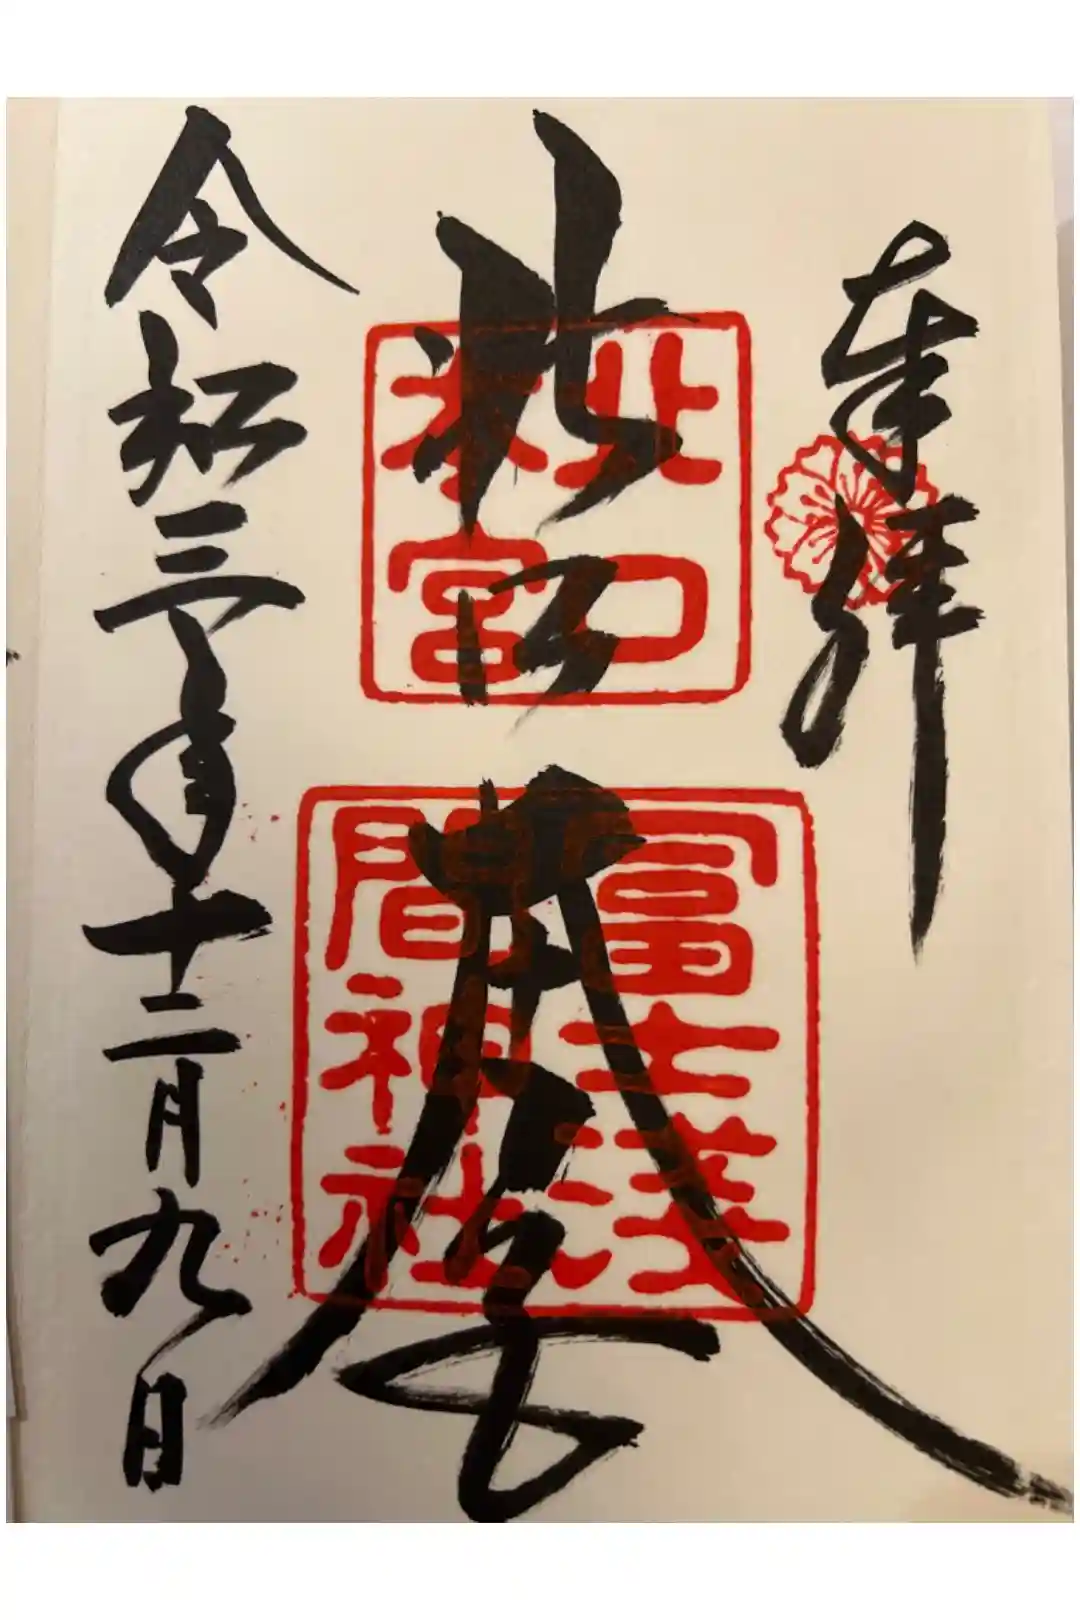 奉拝
北口
北口
本宮
冨士浅
間神社
令和三年十二月九日